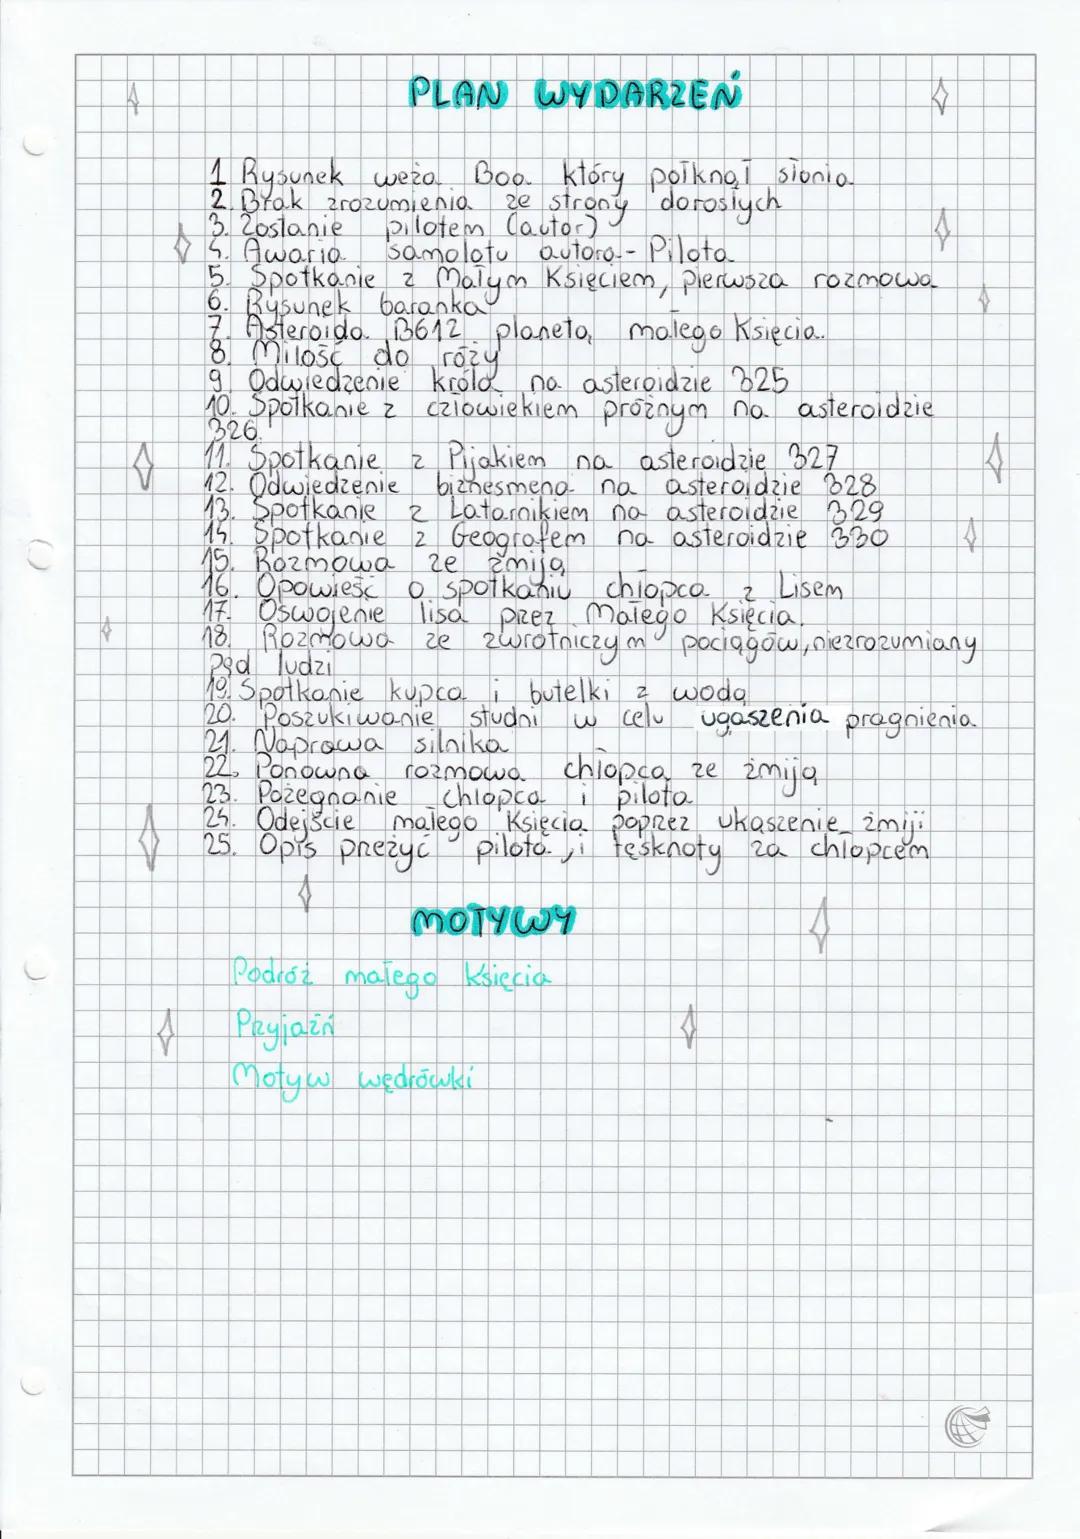 PLAN WYDARZEŃ
1 Rysunek węża Boa który połknął słonia
2. Brak zrozumienia ze strony dorosłych
3. Zostanie pilotem (autor)
4. Awaria samolotu autora - Pilota
5. Spotkanie z Małym Księciem, pierwsza rozmowa
6. Rysunek baranka
7. Asteroida B612 planetą małego Księcia.
8. Miłość do róży
9. Odwiedzenie króla na asteroidzie 325
10. Spotkanie z człowiekiem próżnym na asteroidzie
326.
11. Spotkanie z Pijakiem na asteroidzie 327
12. Odwiedzenie biznesmena na asteroidzie 328
13. Spotkanie z Latarnikiem na asteroidzie 329
14. Spotkanie z Geografem na asteroidzie 330
15. Rozmowa ze żmiją
16. Opowieść o spotkaniu chłopca z Lisem
17. Oswojenie lisa przez Małego Księcia.
18. Rozmowa ze zwrotniczym pociągów, niezrozumiany
pęd ludzi
19. Spotkanie kupca i butelki z wodą
20. Poszukiwanie studni w celu ugaszenia pragnienia
21. Naprawa silnika
22. Ponowna rozmowa chłopca ze żmiją
23. Pożegnanie chłopca i pilota
24. Odejście małego Księcia poprzez ukąszenie żmiji
25. Opis przeżyć pilota, i tęsknoty za chłopcem
MOTYWY
Podróż małego Księcia
Przyjaźń
Motyw wędrówki